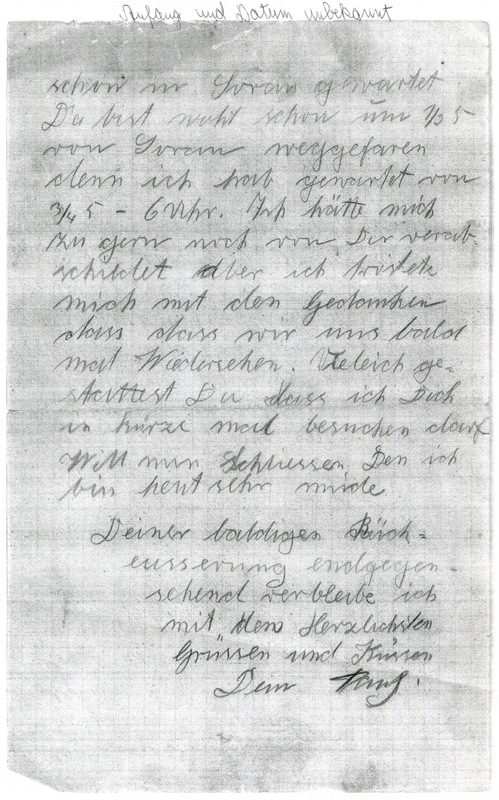 Anfang und Datum unbekannt
schon in Soran gewartet
Du bist wohl schon um 1/2 5
von Soran weggefaren
denn ich hab gewartet von
3/4 5 - 6 Uhr. Ich hätte mich
zu gern noch von Dir verab-
schidet aber ich tröstete
mich mit den Gedanken
dass dass wir uns bald
mal Wiedersehen. Vieleich ge-
stattest Du dass ich Dich
in kürze mal besuchen darf
Will nun Schliessen Den ich
bin heut sehr müde
Deiner baldigen Rück-
eusserung endgegen-
sehend verbleibe ich
mit den Herzlichsten
Grüssen und Küssen
Dein